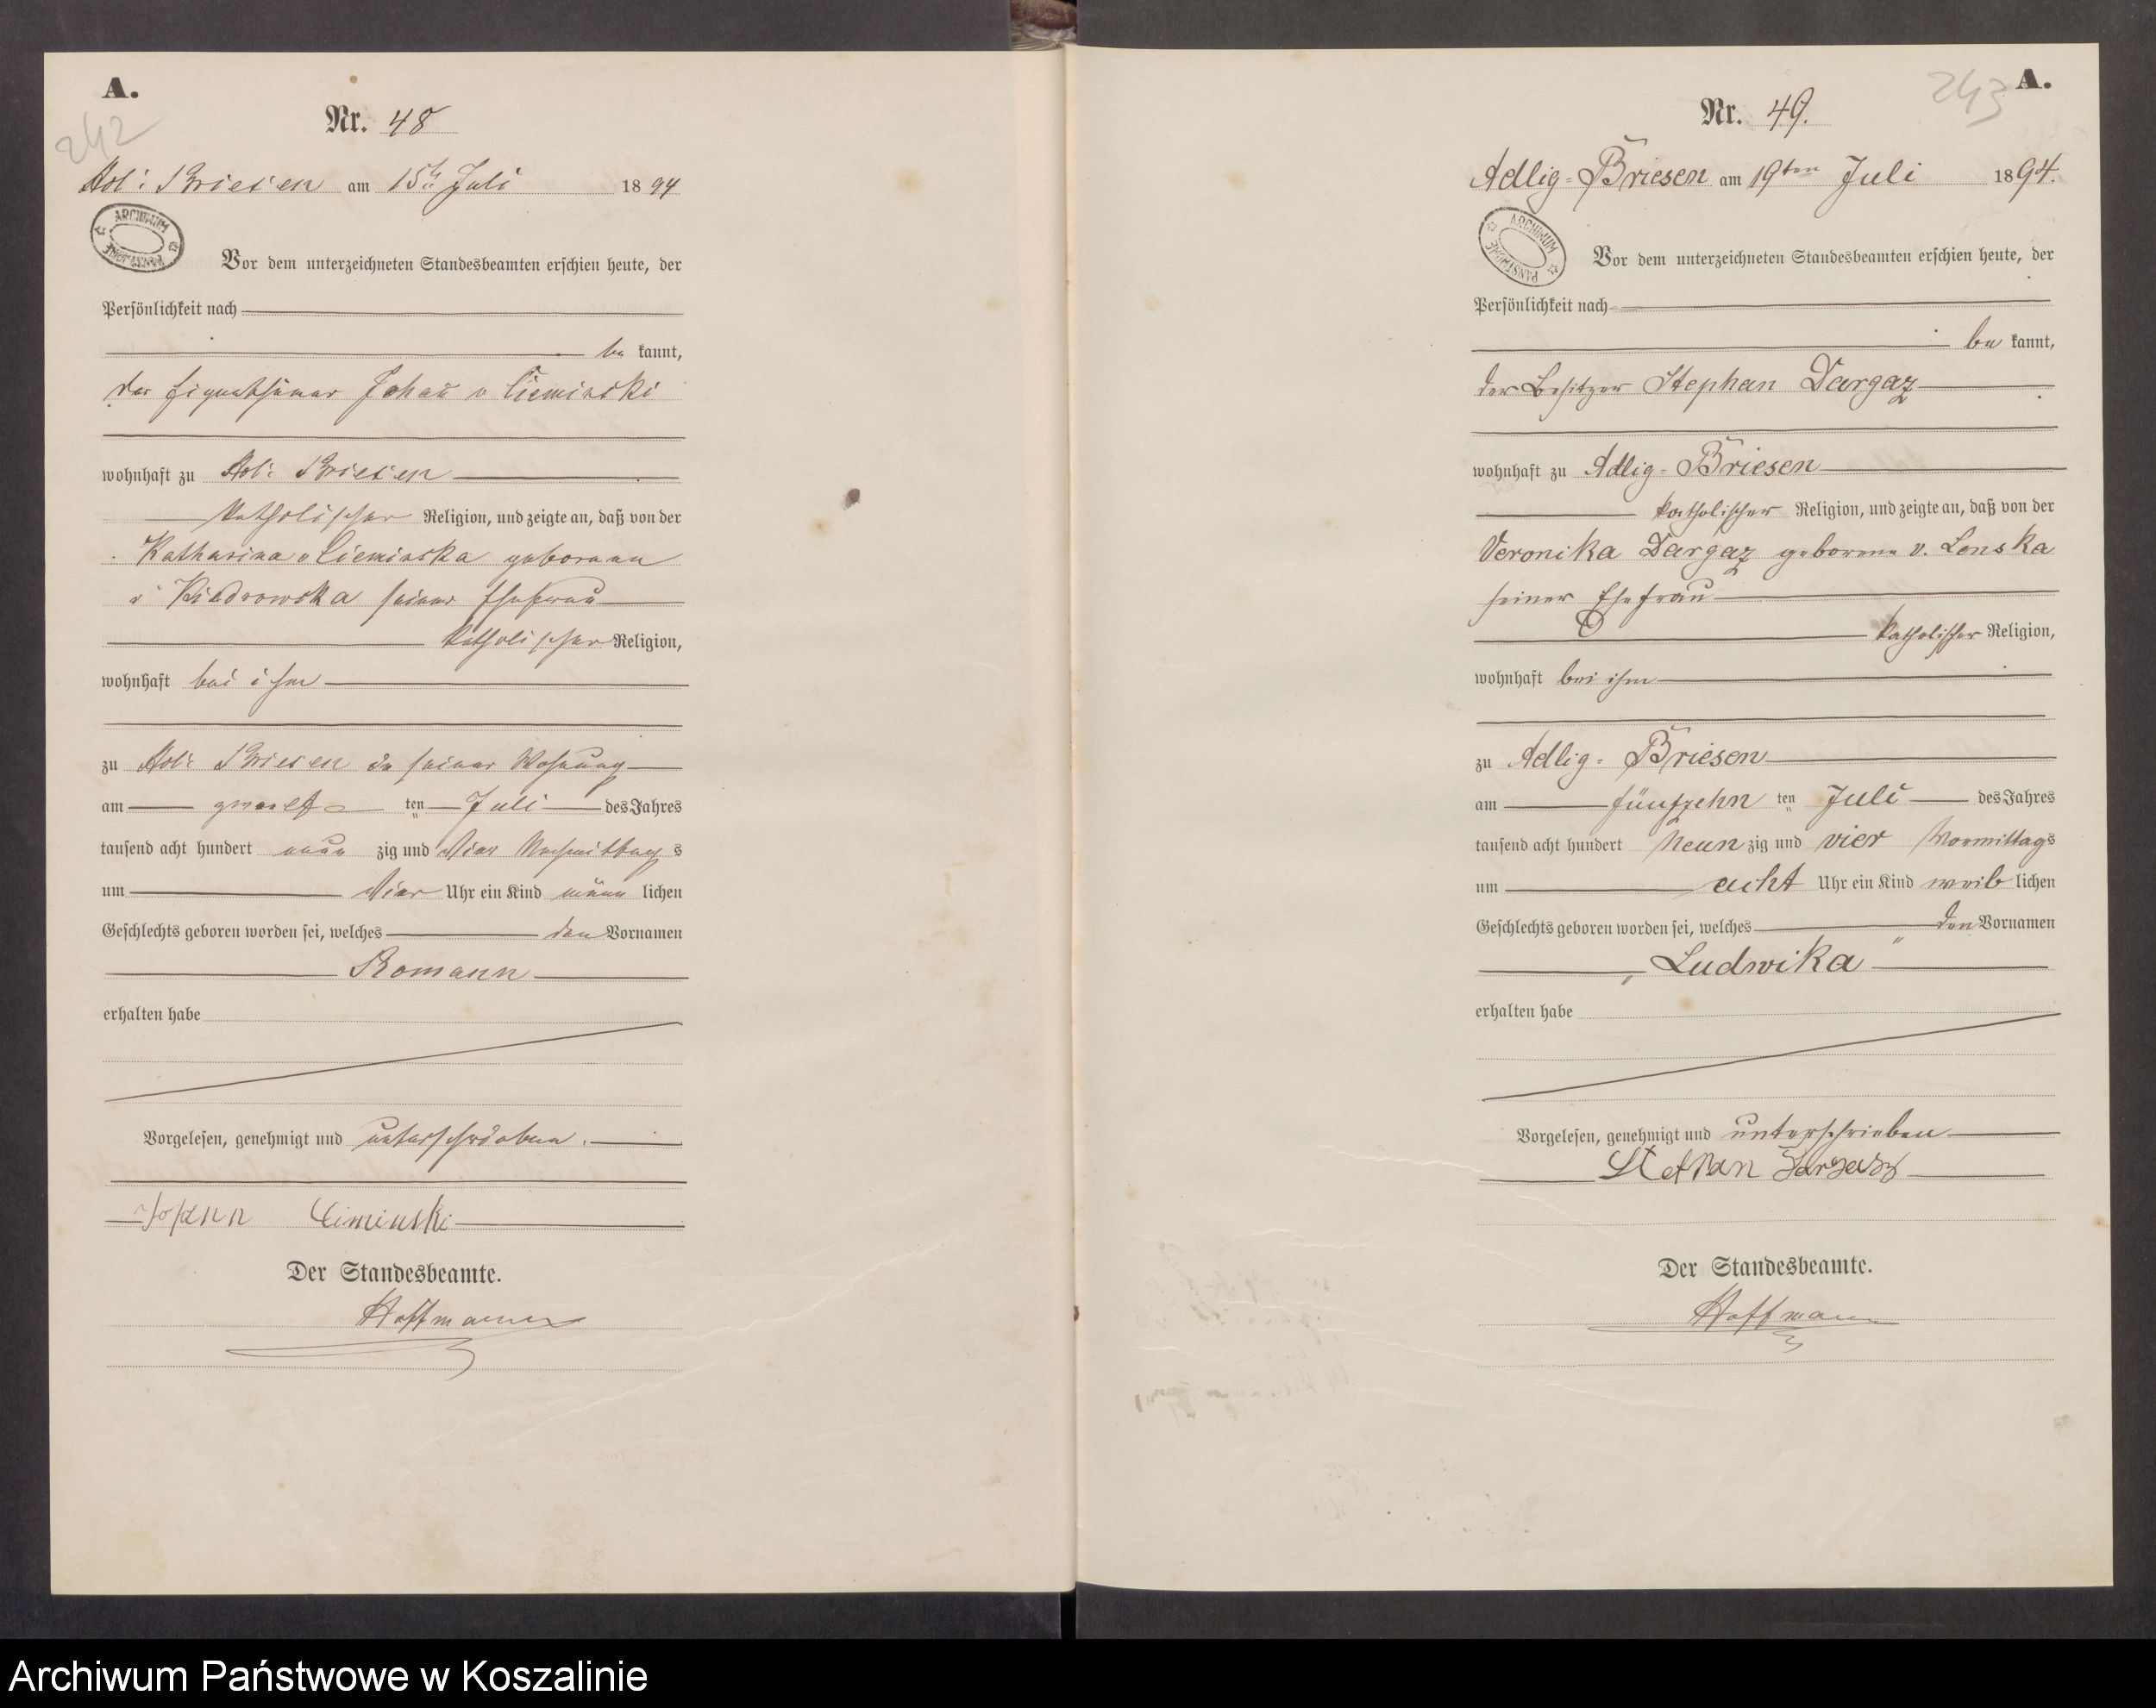 A.
242
Nr. 48
Adl: Briesen am 15ten Juli 1894
ARCHIWUM PAŃSTWOWE
Vor dem unterzeichneten Standesbeamten erschien heute, der
Persönlichkeit nach
be kannt,
der Eigenthümer Johann v Cieminski
wohnhaft zu Adl: Briesen
katholischer Religion, und zeigte an, daß von der
Katharina v Cieminska geborenen
v Kiedrowska seiner Ehefrau
katholischer Religion,
wohnhaft bei ihm
zu Adl: Briesen in seiner Wohnung
am zwoelf ten Juli des Jahres
tausend acht hundert neun zig und vier Nachmittags
um vier Uhr ein Kind männ lichen
Geschlechts geboren worden sei, welches den Vornamen
Romann
erhalten habe
Vorgelesen, genehmigt und unterschrieben.
Johann Ciminski
Der Standesbeamte.
Hoffmann
A.
243
Nr. 49.
Adlig-Briesen am 19ten Juli 1894.
ARCHIWUM PAŃSTWOWE
Vor dem unterzeichneten Standesbeamten erschien heute, der
Persönlichkeit nach
be kannt,
der Besitzer Stephan Dargaz
wohnhaft zu Adlig-Briesen
katholischer Religion, und zeigte an, daß von der
Veronika Dargaz geborene v. Lonska
seiner Ehefrau
katholischer Religion,
wohnhaft bei ihm
zu Adlig-Briesen
am fünfzehn ten Juli des Jahres
tausend acht hundert Neun zig und vier Vormittags
um acht Uhr ein Kind weib lichen
Geschlechts geboren worden sei, welches den Vornamen
„Ludwika"
erhalten habe
Vorgelesen, genehmigt und unterschrieben
Stefan Dargasz
Der Standesbeamte.
Hoffmann
Archiwum Państwowe w Koszalinie